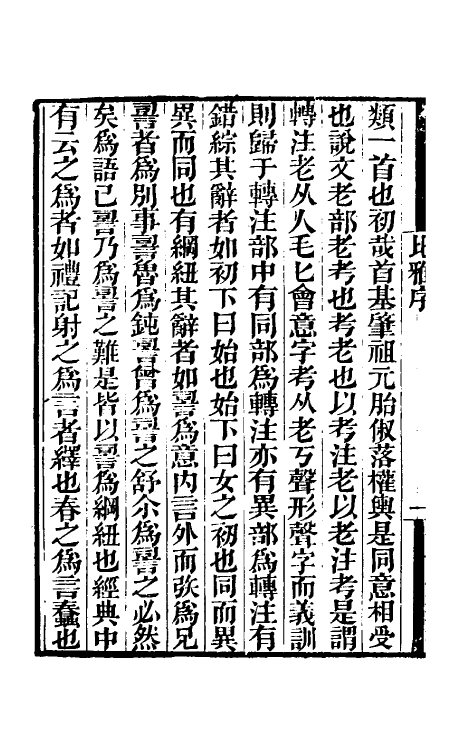 比雅序
一
類一首也初哉首基肇祖元胎俶落權輿是同意相受
也說文老部老考也考老也以考注老以老注考是謂
轉注老从人毛匕會意字考从老丂聲形聲字而義訓
則歸于轉注部中有同部為轉注亦有異部為轉注有
錯綜其辭者如初下曰始也始下曰女之初也同而異
異而同也有綱紐其辭者如䛐為意內言外而矤為兄
䛐者為別事䛐魯為鈍䛐曾為䛐之舒尒為䛐之必然
矣為語已䛐乃為䛐之難是皆以䛐為綱紐也經典中
有云之為者如禮記射之為言者繹也春之為言蠢也